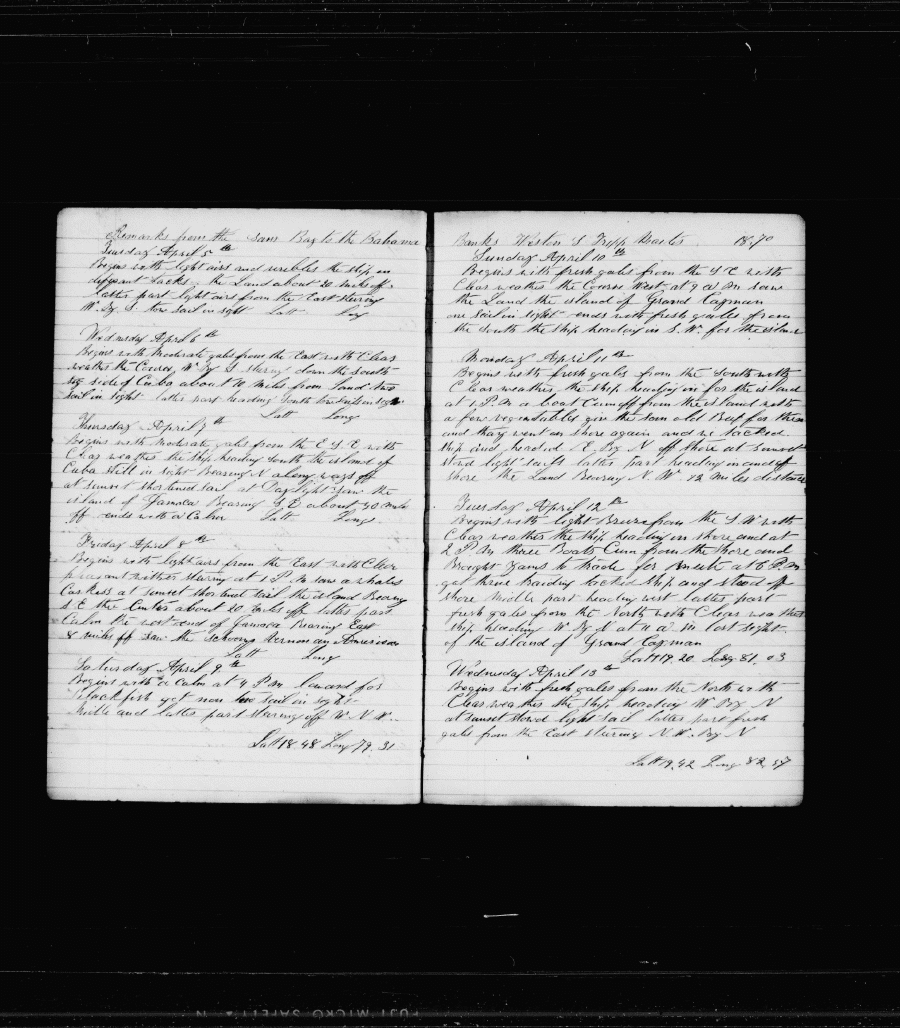 Remarks from the Sam Bay to the Bahama
Tuesday April 5th
Begins with light airs and varibles the ship on
different tacks the Land about 20 miles off
latter part light airs from the East stering
W. By S. two sail in sight Latt Long
Wednesday April 6th
Begins with Moderate gales from the East with Clear
weather the Course W By S stering down the south
side of Cuba about 10 miles from land two
sail in sight latter part heading South two sail in sight
Latt Long
Thursday April 7th
Begins with moderate gales from the E S E with
Clear weather the ship heading South the island of
Cuba still in sight Bearing N a long ways off
at sunset shortened sail at Daylight saw the
island of Jamaca Bearing S E about 30 miles
off ends with a Calm Latt Long
Friday April 8th
Begins with light airs from the East with Clear
pleasant wether stering at 1 P M saw a whales
Carkiss at sunset shortned sail the island Bearing
S. E the Center about 20 miles off latter part
Calm the west end of Jamaca Bearing East
8 miles off saw the schoony Vernon an American
Latt Long
Saturday April 9th
Begins with a Calm at 4 P M loward for
Blackfish got non two sail in sight
midle and latter part stering off W. N. W.
Latt 18.48 Long 79.31
Banks Weston S Tripp Master 1870
Sunday April 10th
Begins with fresh gales from the S E with
Clear weather the Course West at 9 a m saw
the Land the island of Grand Cayman
one sail in sight ends with fresh gales from
the South the ship heading in S. W. for the island
Monday April 11th
Begins with fresh gales from the South with
Clear weather the ship heading in for the island
at 1 P. M a boat Cum off from the island with
a few vegendables give the som old Beef for them
and thay went on shore again and we tacked
ship and headed E By N off shore at sunset
stord light sails latter part heading in and off
shore the Land Bearing N. W. 12 miles distance
Tuesday April 12th
Begins with light Breeze from the S W with
Clear weather the ship heading in shore and at
2 P M three Boats Cum from the shore and
Brought Yams to trade for at 6 P. M
got thrue trading tacked ship and stood off
shore Middle part heading west latter part
fresh gales from the North with Clear weather
ship heading W. By N at 11 a m lost sight
of the island of Grand Cayman
Latt 19.20 Long 81.03
Wednesday April 13th
Begins with fresh gales from the North with
Clear weather the ship heading W By N
at sunset stowed light sail latter part fresh
gales from the East stering N. W. By N
Latt 19.42 Long 82.57
FUJI MICRO SAFETY